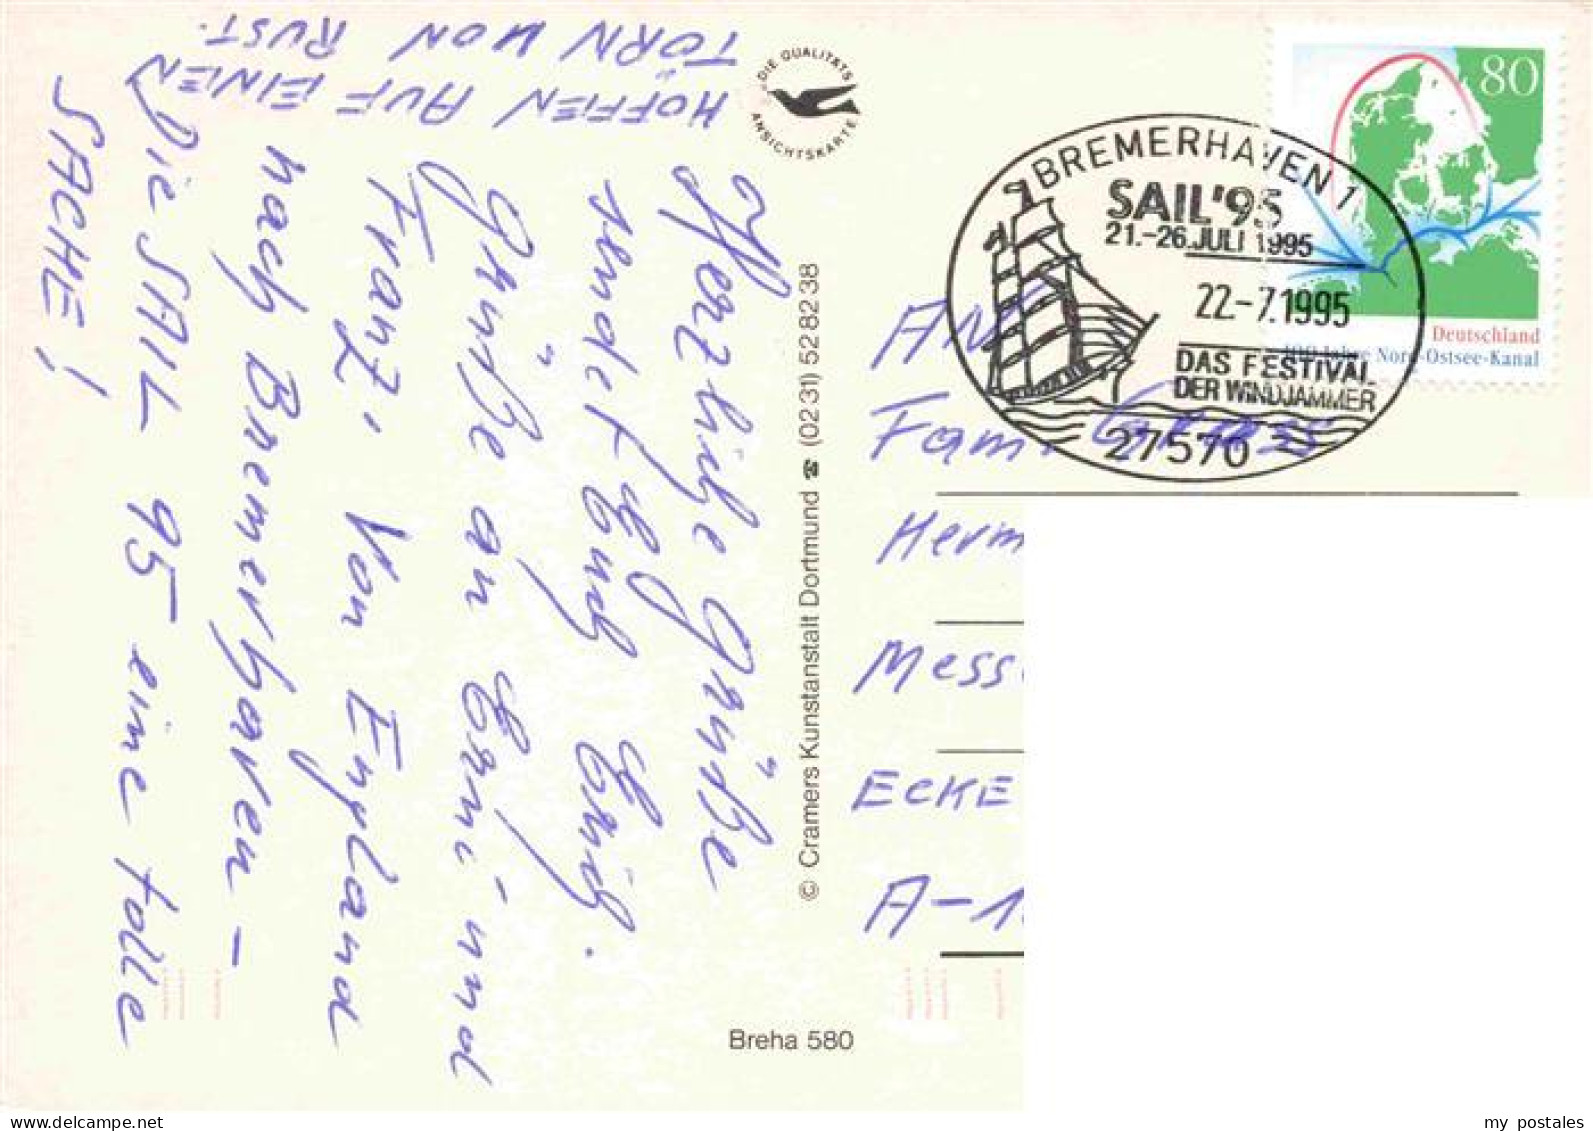 Herzliche Grüße
sendet Euch Erich.
Grüße an Erni und
Franz, Von England
nach Bremerhaven –
Die SAIL 95 eine tolle
SACHE!
HOFFEN AUF EINEN
TÖRN VON RUST.
DIE QUALITÄTS
ANSICHTSKARTE
© Cramers Kunstanstalt Dortmund ☎ (0231) 528238
Breha 580
80
Deutschland
100 Jahre Nord-Ostsee-Kanal
BREMERHAVEN 1
SAIL'95
21.-26. JULI 1995
22.-7.1995
DAS FESTIVAL
DER WINDJAMMER
27570
AN
Fam.
Herm
Mess
ECKE
A-1
my postales